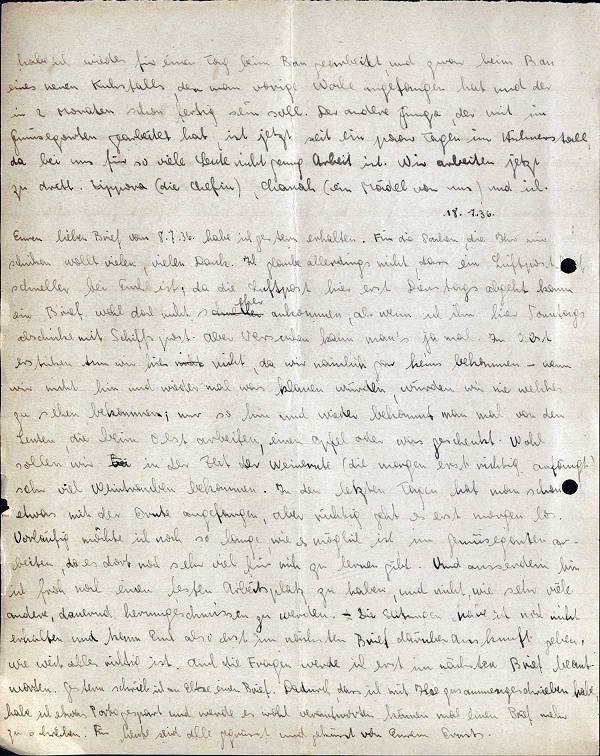 habe ich wieder für einen Tag beim Bau gearbeitet, und zwar beim Bau
eines neuen Kuhstalls, den man vorige Woche angefangen hat und der
in 2 Monaten schon fertig sein soll. Der andere Junge, der mit im
Gemüsegarten gearbeitet hat, ist jetzt seit ein paar Tagen im Hühnerstall,
da bei uns für so viele Leute nicht genug Arbeit ist. Wir arbeiten jetzt
zu dritt. Zippora (die Chefin), Chanah (ein Mädel von uns) und ich.
18. 7.36.
Euren lieben Brief vom 8.7.36. habe ich gestern erhalten. Für die Sachen die Ihr mir
schicken wollt vielen, vielen Dank. Ich glaube allerdings nicht, dass ein Luftpost
schneller bei Euch ist, da die Luftpost hier erst Dienstags abgeht kann
ein Brief wohl doch nicht eher ankommen, als wenn ich ihn hier Sonntags
abschicke mit Schiffspost. Aber versuchen kann man's ja mal. In Obst
ersticken tun wir hier nicht, da wir nämlich gar keins bekommen – wenn
wir nicht hin und wieder mal was klauen würden, würden wir nie welches
zu sehen bekommen; nur so hin und wieder bekommt man mal von den
Leuten, die beim Obst arbeiten, einen Apfel oder was geschenkt. Wohl
sollen wir in der Zeit der Weinernte (die morgen erst richtig anfängt)
sehr viel Weintrauben bekommen. In den letzten Tagen hat man schon
etwas mit der Ernte angefangen, aber richtig geht es erst morgen los.
Vorläufig möchte ich noch so lange, wie es möglich ist im Gemüsegarten ar-
beiten, da es dort noch sehr viel für mich zu lernen gibt. Und ausserdem bin
ich froh noch einen festen Arbeitsplatz zu haben, und nicht, wie sehr viele
andere, dauernd herumgeschmissen zu werden. – Die Zeitungen habe ich noch nicht
erhalten und kann Euch also erst im nächsten Brief darüber Auskunft geben,
wie weit alles richtig ist. Auch die Fragen werde ich erst im nächsten Brief beant-
worten. Gestern schrieb ich an einen Brief. Dadurch, dass ich mit Ilse zusammengeschrieben habe,
habe ich etwas Porto gespart und werde es wohl verantworten können mal einen Brief mehr
zu schreiben. Für heute seid alle gegrüsst und geküsst von Eurem Ernst.